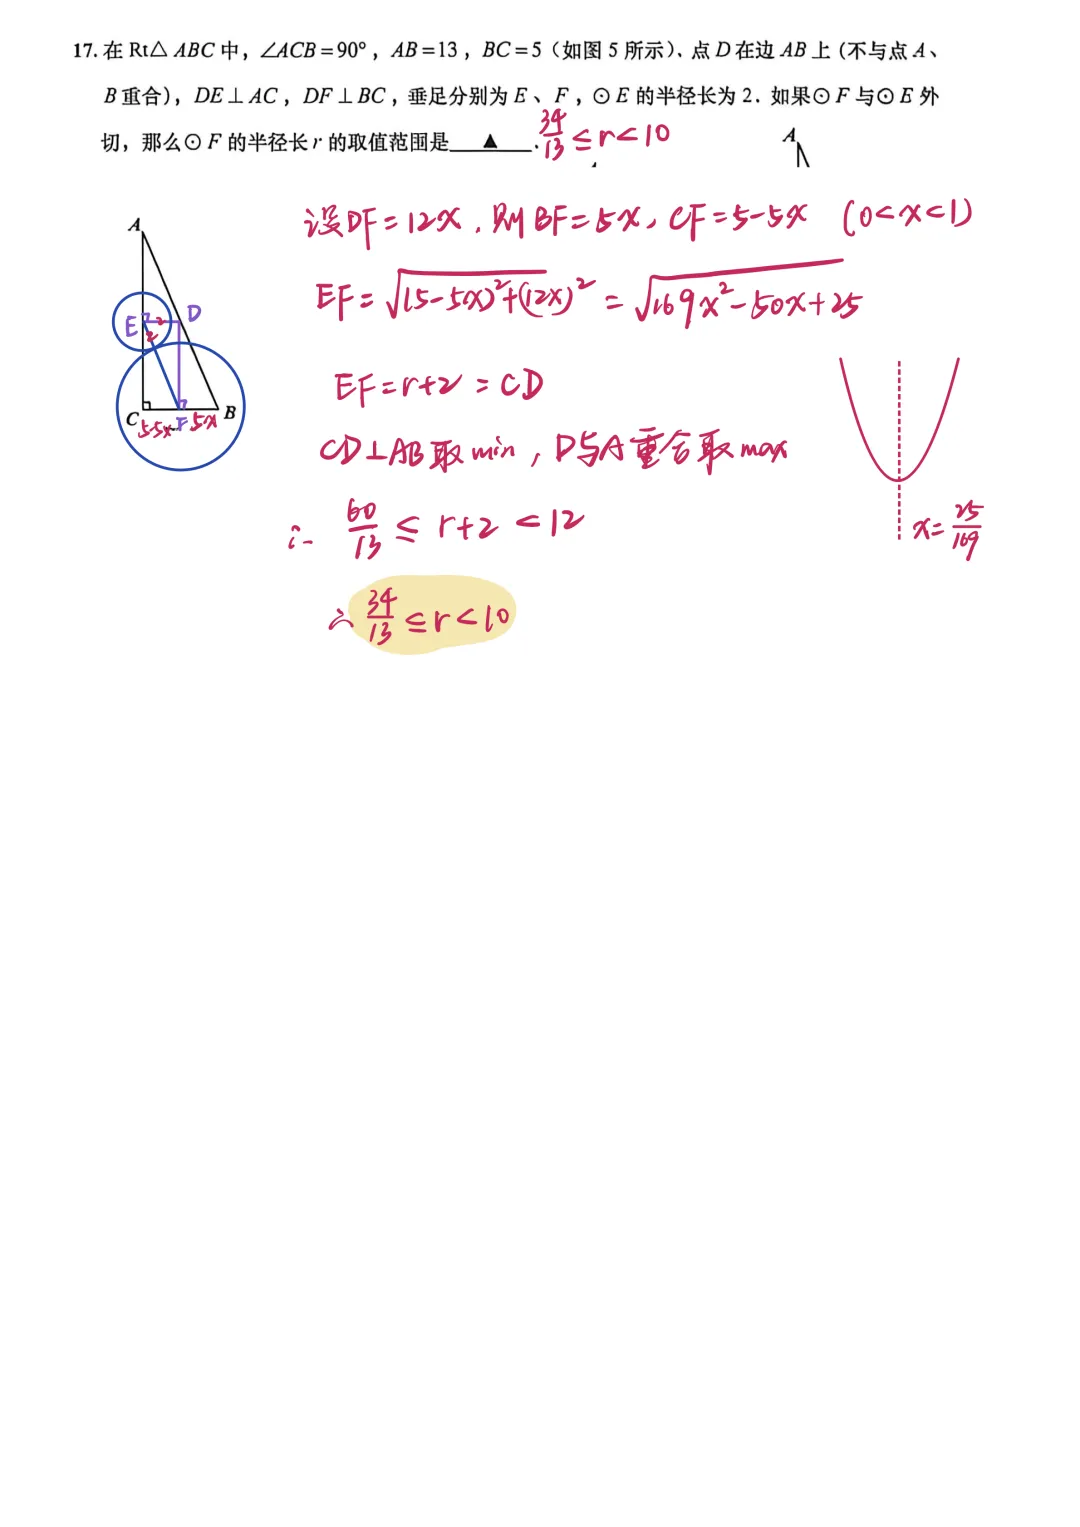 17. 在 Rt△ ABC 中，∠ACB＝90°，AB＝13，BC＝5（如图 5 所示）. 点 D 在边 AB 上（不与点 A、
B 重合），DE⊥AC，DF⊥BC，垂足分别为 E、F，⊙E 的半径长为 2. 如果⊙F 与⊙E 外
切，那么⊙F 的半径长 r 的取值范围是▲. 34/13 ≤ r < 10
A
设DF = 12x，则BF = 5x，CF = 5-5x (0<x<1)
A
EF = √(5-5x)²+(12x)² = √169x²-50x+25
E 2 D
2
EF = r+2 = CD
C 5-5x F 5x B
CD⊥AB取min，D与A重合取max
∴ 60/13 ≤ r+2 < 12
x = 25/169
∴ 34/13 ≤ r < 10